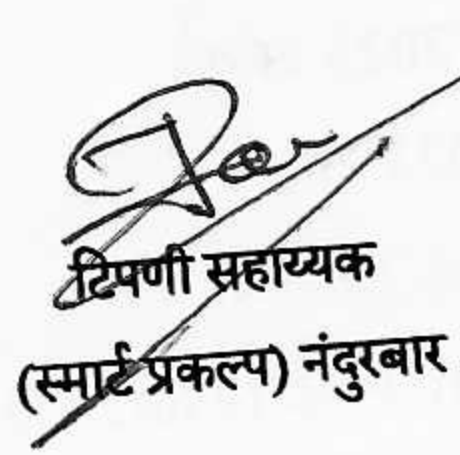 टिपणी सहाय्यक
(स्मार्ट प्रकल्प) नंदुरबार